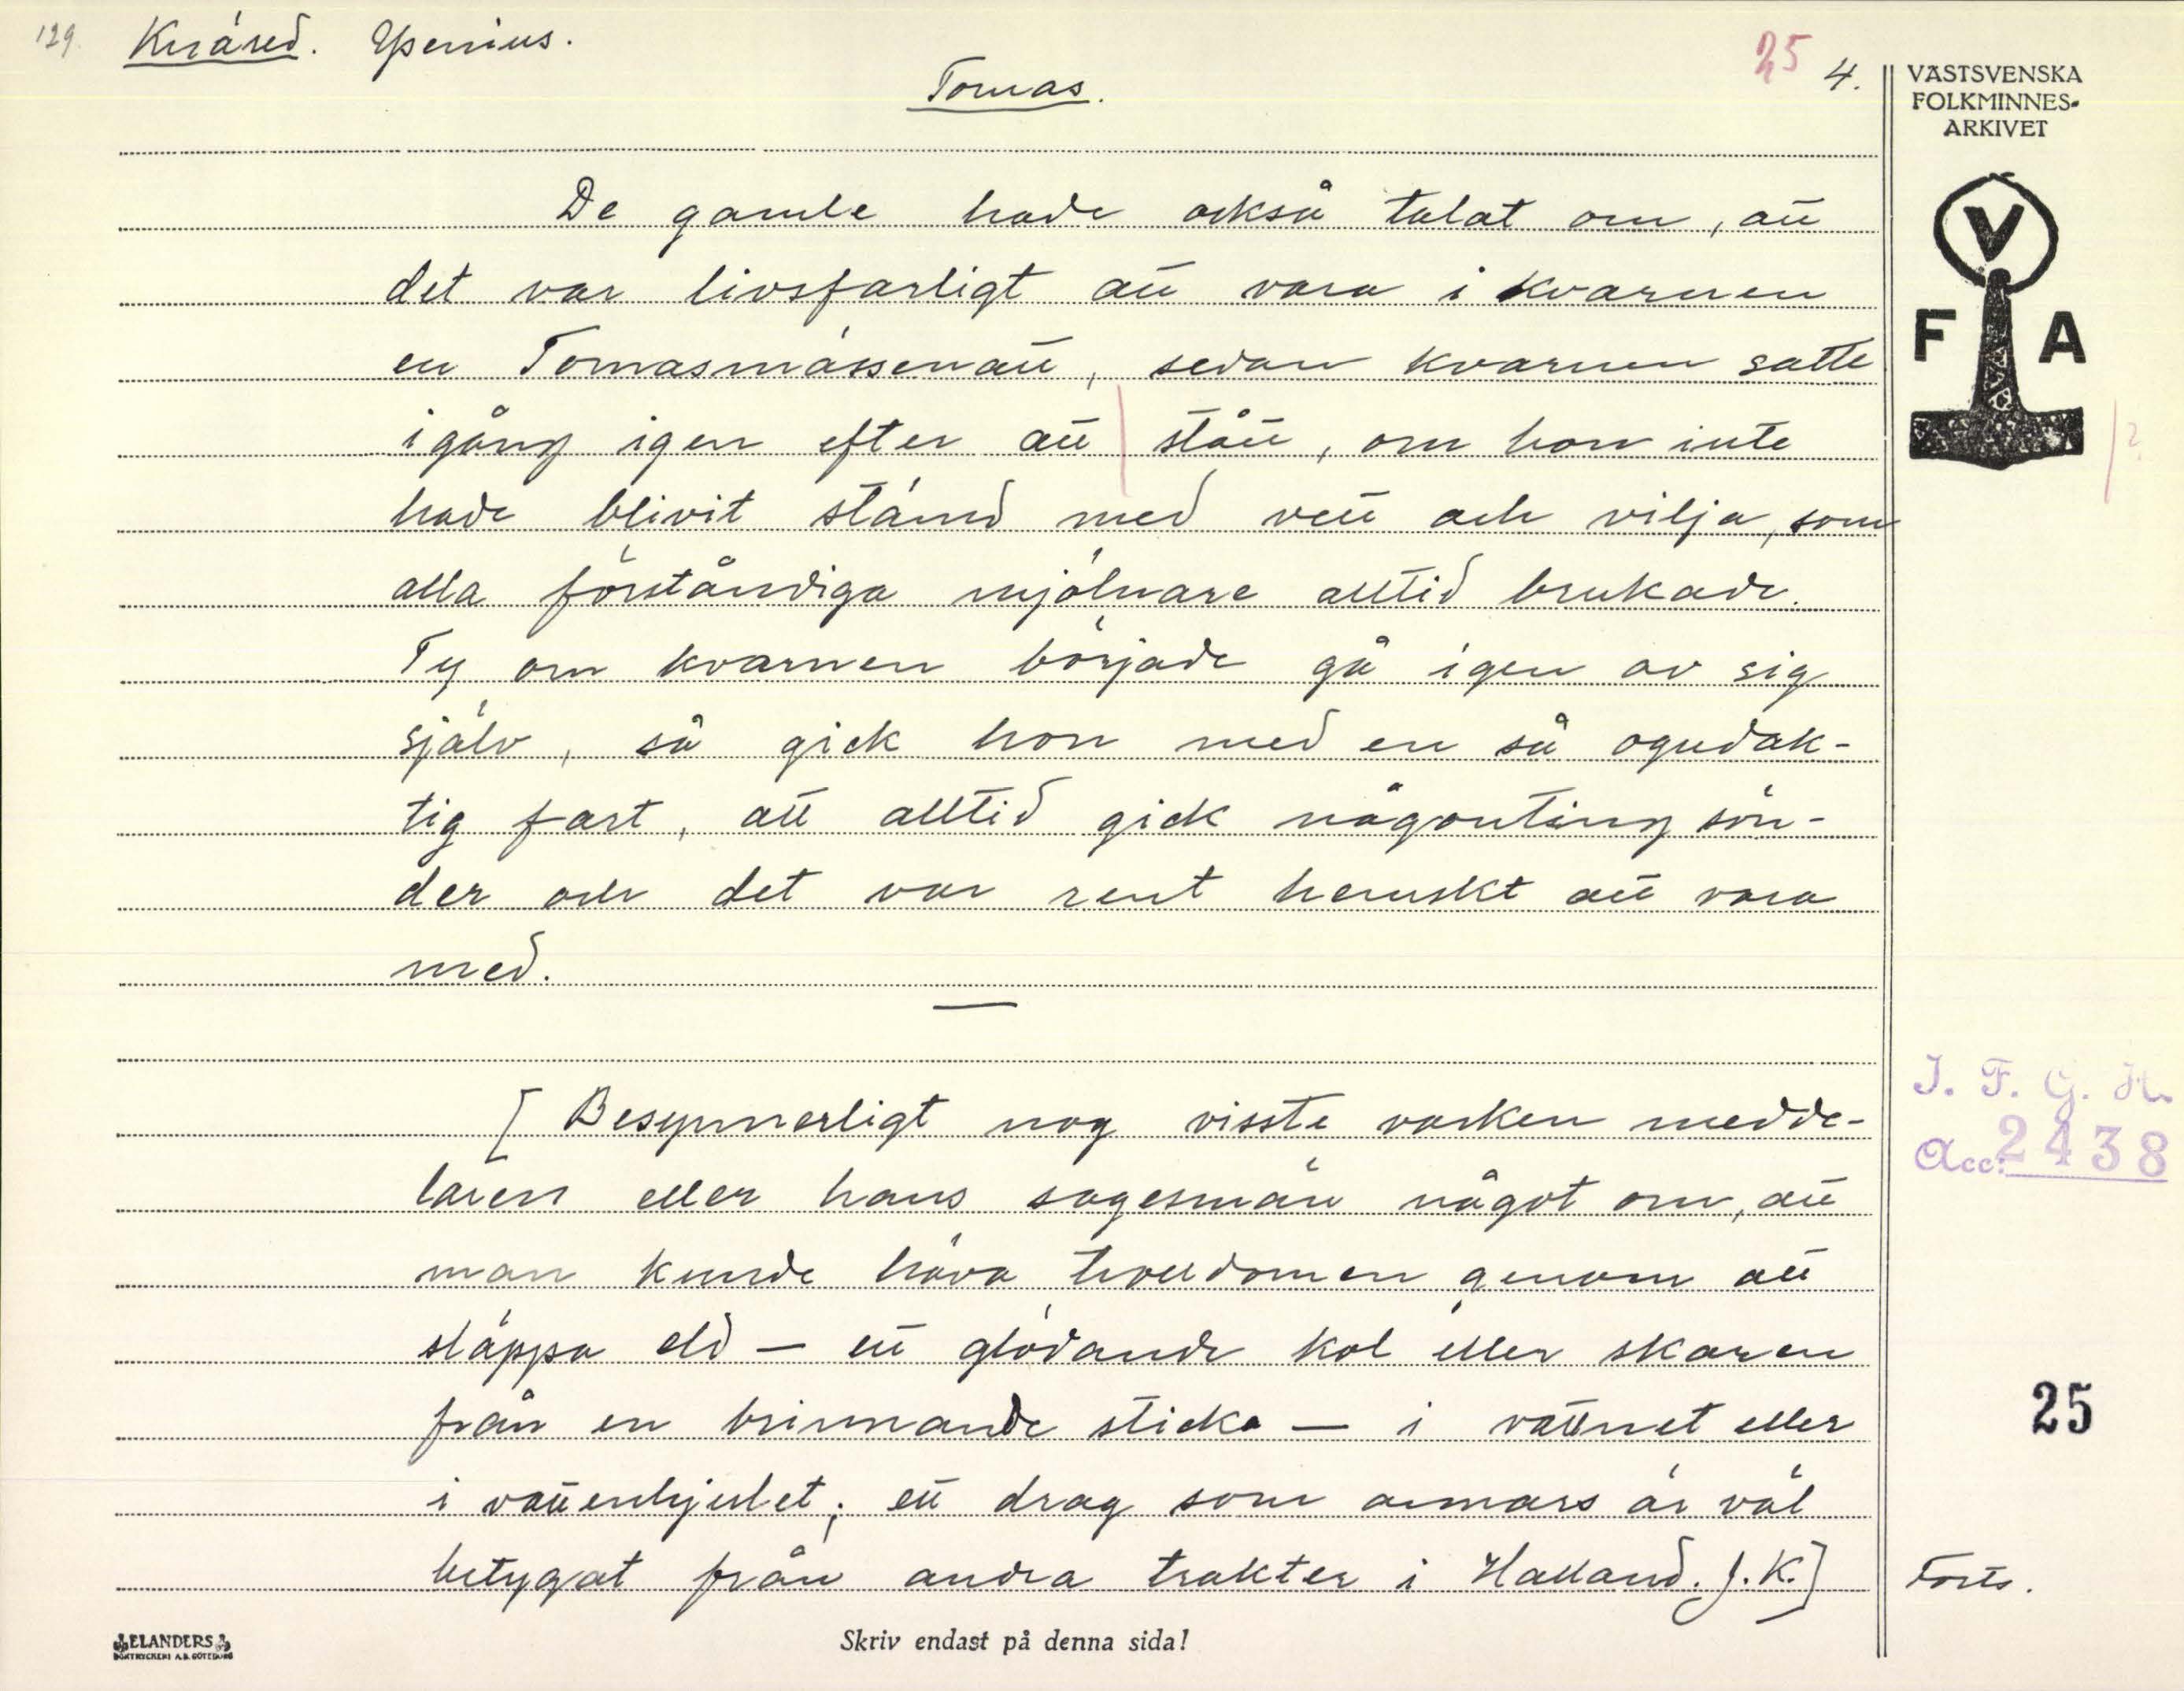 129. Knäred. Ysenius. 25 4.
Tomas.
VÄSTSVENSKA
FOLKMINNES-
ARKIVET
V
F A
De gamle hade också talat om, att
det var livsfarligt att vara i kvarnen
en Tomasmässenatt, sedan kvarnen satte
igång igen efter att stått, om hon inte
hade blivit ställd med vett och vilja, som
alla förståndiga mjölnare alltid brukade.
Ty om kvarnen började gå igen av sig
själv, så gick hon med en så ogudak-
tig fart, att alltid gick någonting sön-
der och det var rent hemskt att vara
med.
[Besynnerligt nog visste varken medde-
laren eller hans sagesmän något om, att
man kunde häva trolldomen genom att
släppa eld – ett glödande kol eller skaren
från en brinnande sticka – i vattnet eller
i vattenhjulet; ett drag som annars är väl
betygat från andra trakter i Halland. J.K.]
?
I. F. G. H.
Acc: 2438
25
Forts.
ELANDERS
BOKTRYCKERI A.B. GÖTEBORG
Skriv endast på denna sida!